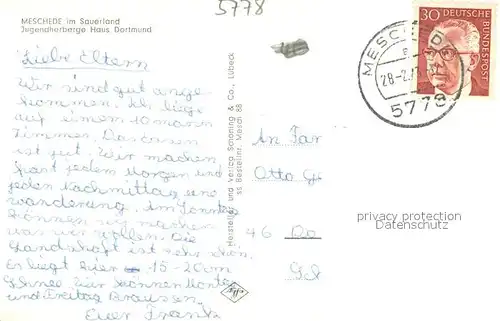 5778
MESCHEDE im Sauerland
Jugendherberge Haus Dortmund
Liebe Eltern
Wir sind gut ange
kommen. Ich liege
auf einem 10 mann
Zimmer. Das Essen
ist gut. Wir machen
fast jedem Morgen und
jeden Nachmittag eine
wanderung. im Sonntag
können wir machen
was wir wollen. Die
Landschaft ist sehr schön.
Es liegt hier 15-20cm
Schnee. Wir können
und Freitag Brausen.
Euer Frank
Hersteller und Verlag Schöning & Co., Lübeck
ss Bestellnr. Mesch 88
30 DEUTSCHE BUNDESPOST
MESCHEDE
28-2.
5778
An Fam
Otto
46 Do
privacy protection
Datenschutz